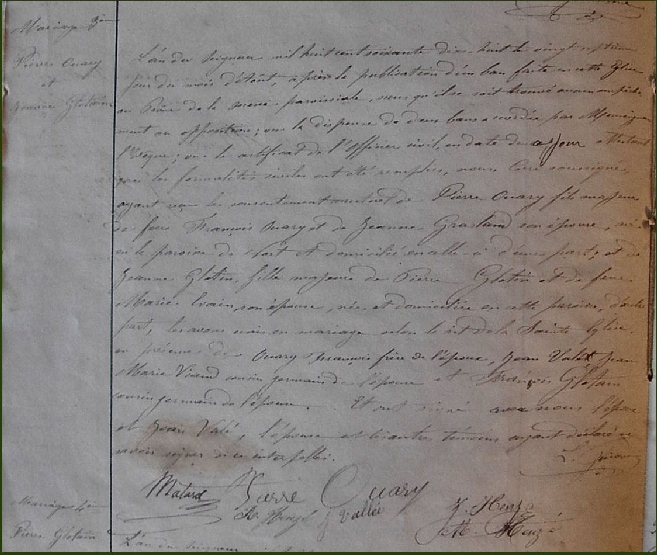 Mariage 3e
Pierre Ouary
et
Jeanne Glotain
L'an du Seigneur mil huit cent soixante dix huit le vingt septième
jour du mois d'Août, après la publication d'un ban faite en cette Eglise
au Prône de la messe paroissiale, sans qu'il se soit trouvé aucun empêche
ment ou opposition; vu la dispense de deux bans accordée par Monseigneur
l'Evêque; vu le certificat de l'Officier civil, en date de ce jour attestant
que les formalités civiles ont été remplies, nous Curé soussigné,
ayant reçu le consentement mutuel de Pierre Ouary fils majeur
de feu François Ouary et de Jeanne Grasland son épouse, né
en la paroisse de et domicilié en celle-ci d'une part; et de
Jeanne Glotin, fille majeure de Pierre Glotin et de feue
Marie Evain, son épouse, née et domiciliée en cette paroisse, d'autre
part, les avons unis en mariage selon le rit de la Sainte Eglise,
en présence de Ouary François frère de l'époux, Jean Valet
Marie Viaud cousin germain de l'épouse et François Glotain
cousin germain de l'épouse. Et ont signé avec nous l'époux
et Jean Valé, l'épouse et les autres témoins ayant déclaré ne
savoir signer de ce interpellés.
Matard Pierre Ouary
J Vallée
Mariage 4e
Pierre Glotain
L'an du Seigneur